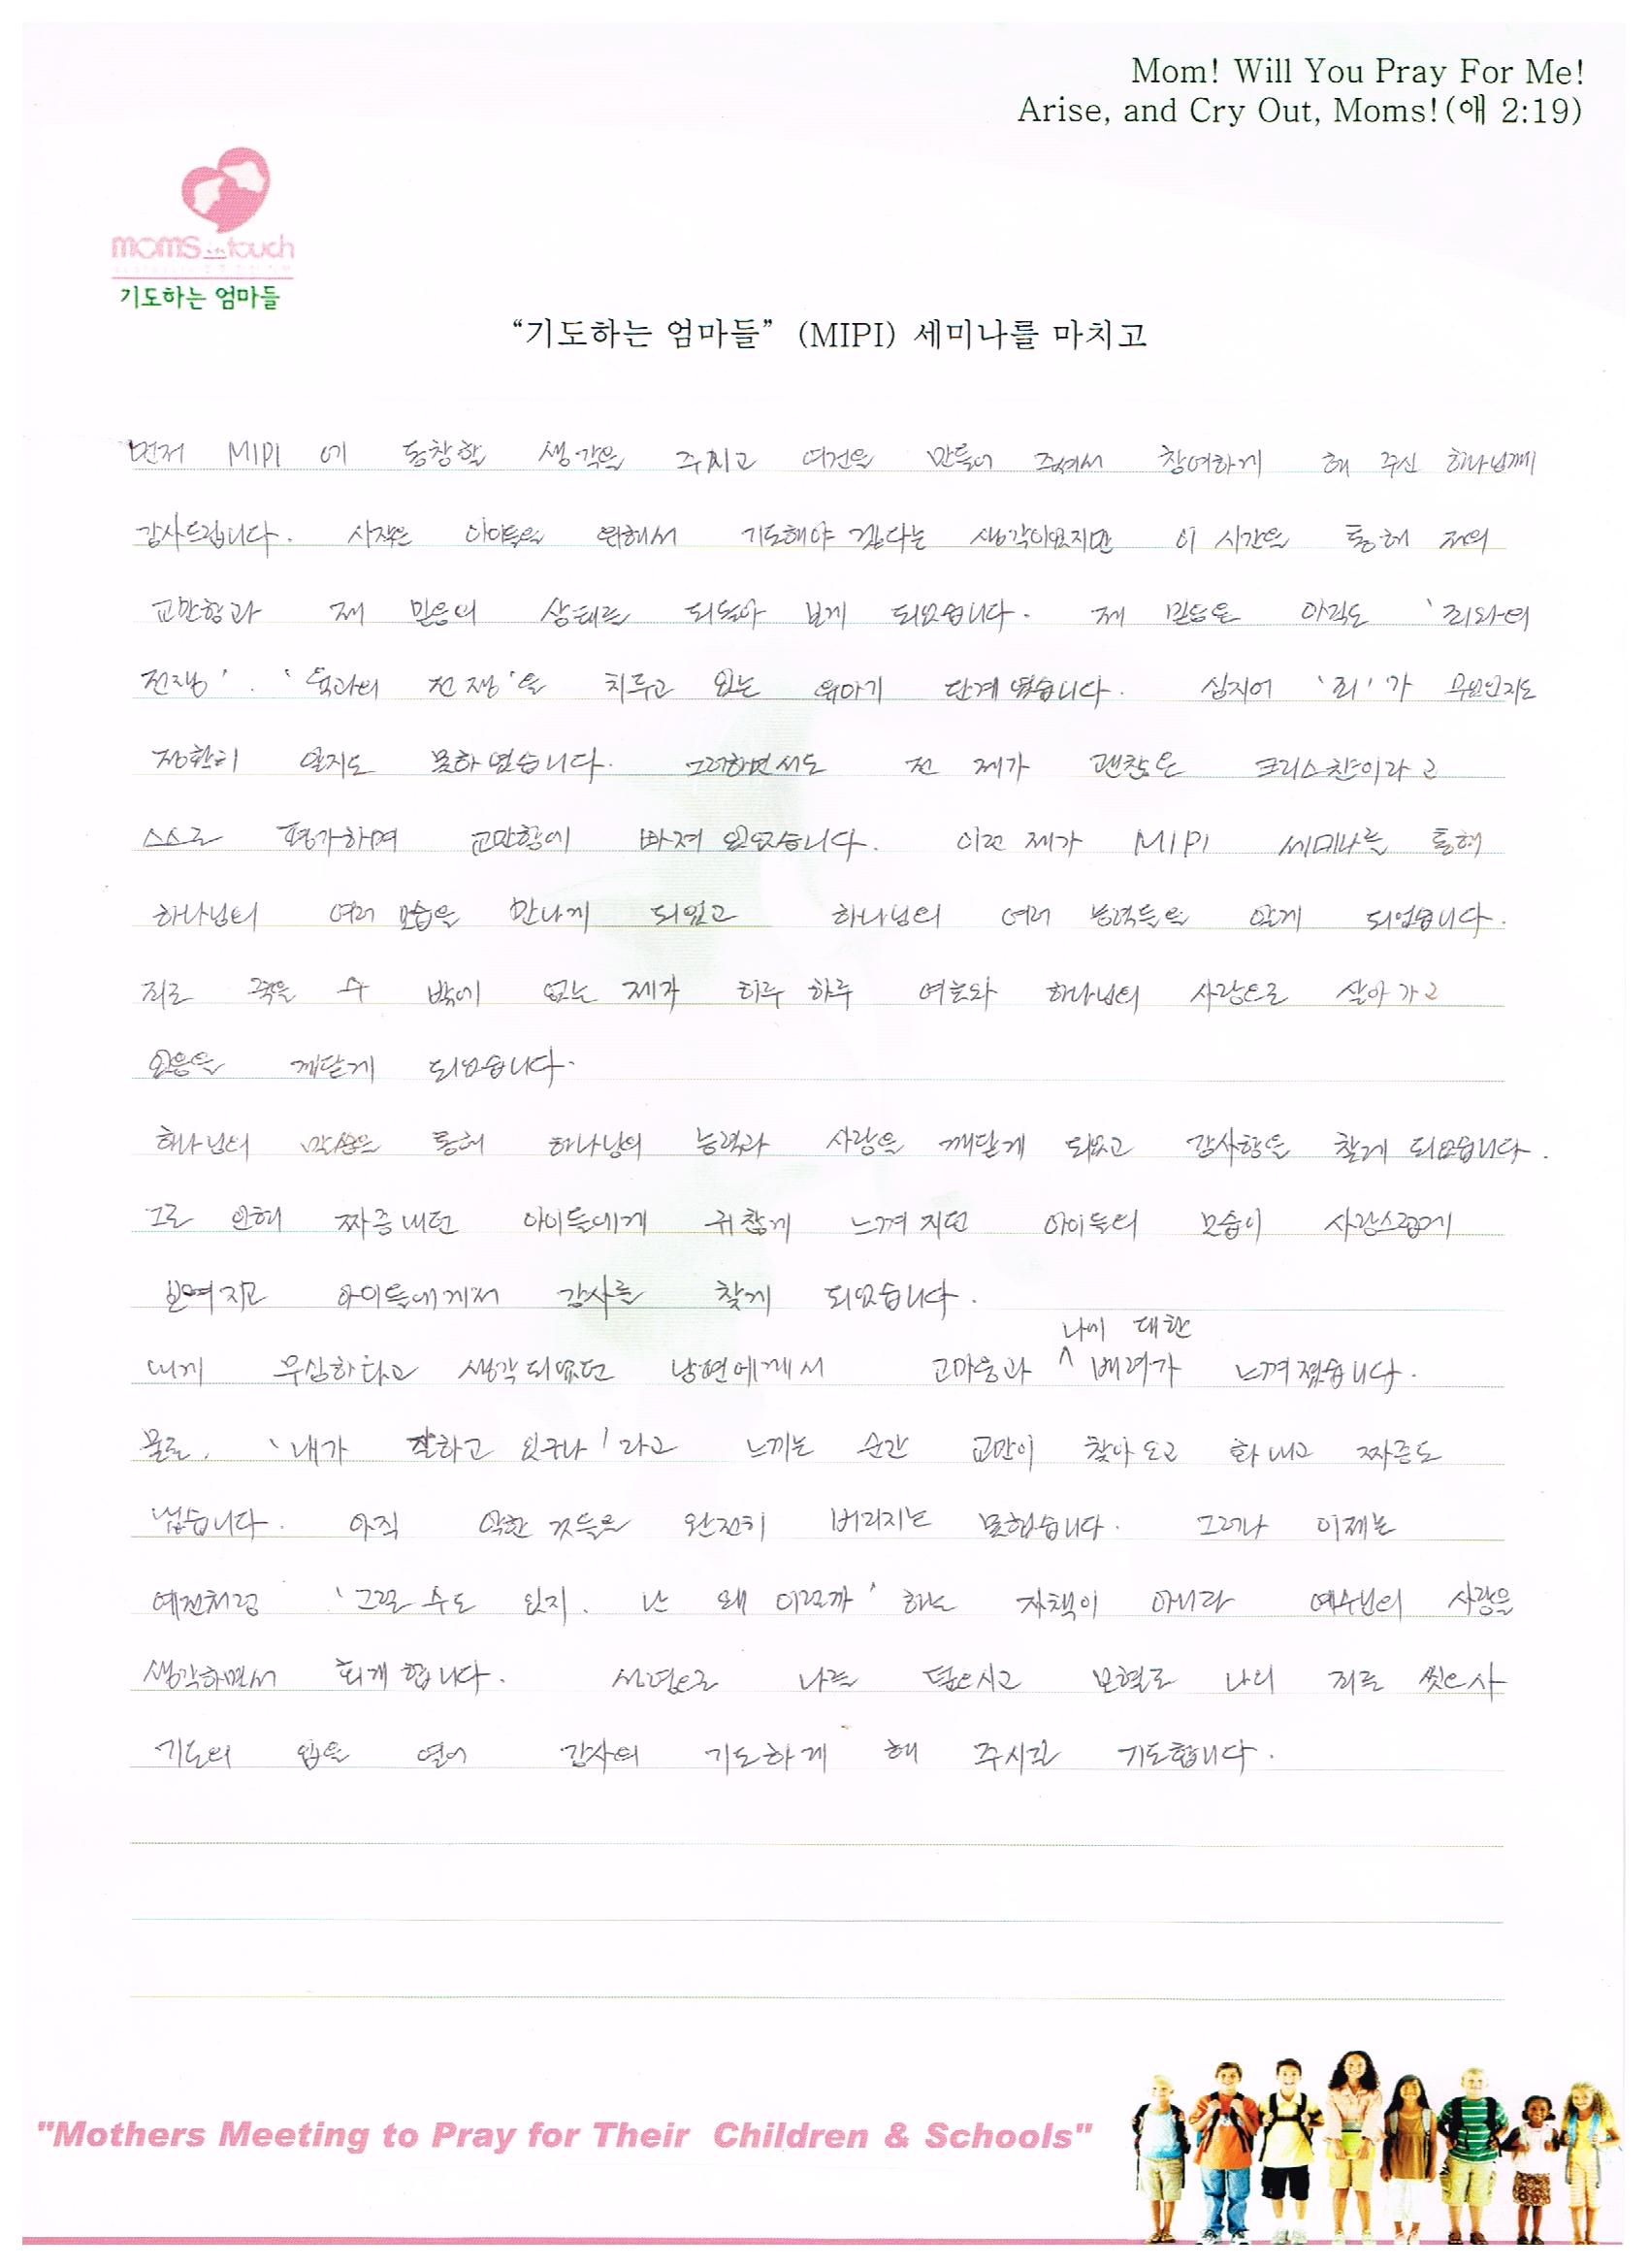 Mom! Will You Pray For Me!
Arise, and Cry Out, Moms!(애 2:19)
moms in touch
기도하는 엄마들
“기도하는 엄마들” (MIPI) 세미나를 마치고
먼저 MIPI 에 동참할 생각을 주시고 여건을 만들어 주셔서 참여하게 해 주신 하나님께
감사드립니다. 시작은 아이들을 위해서 기도해야 겠다는 생각이었지만 이 시간을 통해 저의
교만함과 제 믿음의 상태를 되돌아 보게 되었습니다. 제 믿음은 아직도 '죄와의
전쟁'. '육과의 전쟁'을 치루고 있는 유아기 단계 였습니다. 심지어 '죄'가 무엇인지도
정확히 알지도 못하였습니다. 그러하면서도 전 제가 괜찮은 크리스챤이라고
스스로 평가하며 교만함에 빠져 있었습니다. 이런 제가 MIPI 세미나를 통해
하나님의 여러 모습을 만나게 되었고 하나님의 여러 능력들을 알게 되었습니다.
죄로 죽을 수 밖에 없는 제가 하루 하루 여호와 하나님의 사랑으로 살아 가고
있음을 깨닫게 되었습니다.
하나님의 말씀을 통해 하나님의 능력과 사랑을 깨닫게 되었고 감사함을 찾게 되었습니다.
그로 인해 짜증내던 아이들에게 귀찮게 느껴지던 아이들의 모습이 사랑스럽게
보여지고 아이들에게저 감사를 찾게 되었습니다.
나에 대한
내게 무심하다고 생각되었던 남편에게서 고마움과 ^ 배려가 느껴졌습니다.
물론, '내가 잘하고 있구나'라고 느끼는 순간 교만이 찾아 오고 화 내고 짜증도
냅습니다. 아직 악한 것들을 완전히 버리지는 못했습니다. 그러나 이제는
예전처럼 '그럴 수도 있지. 난 왜 이럴까' 하는 자책이 아니라 예수님의 사랑을
생각하면서 회개 합니다. 성령으로 나를 덮으시고 보혈로 나의 죄를 씻으사
기도의 입을 열어 감사의 기도하게 해 주시길 기도합니다.
"Mothers Meeting to Pray for Their Children & Schools"